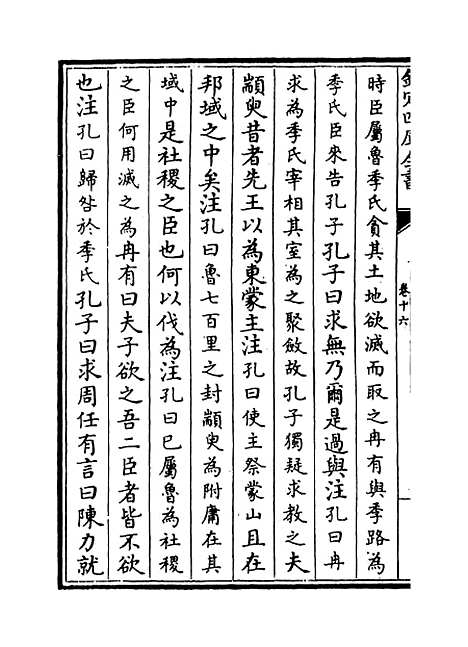 欽定四庫全書
卷十六
時臣屬魯季氏貪其土地欲滅而取之冉有與季路為
季氏臣來告孔子孔子曰求無乃爾是過與注孔曰冉
求為季氏宰相其室為之聚斂故孔子獨疑求教之夫
顓臾昔者先王以為東蒙主注孔曰使主祭蒙山且在
邦域之中矣注孔曰魯七百里之封顓臾為附庸在其
域中是社稷之臣也何以伐為注孔曰已屬魯為社稷
之臣何用滅之為冉有曰夫子欲之吾二臣者皆不欲
也注孔曰歸咎於季氏孔子曰求周任有言曰陳力就